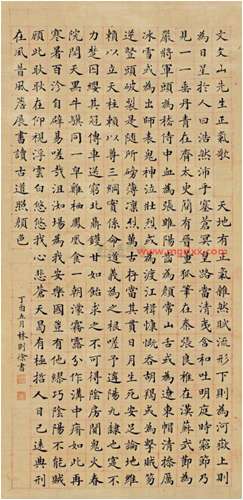 文文山先生正氣歌　天地有正氣雜然賦流形下則為河嶽上則
為日星於人曰浩然沛乎塞蒼冥皇路當清夷含和吐明庭時窮節乃
見一一垂丹青在齊太史簡在晉董狐筆在秦張良椎在漢蘇武節為
嚴將軍頭為嵇侍中血為張睢陽齒為顏常山舌或為遼東帽清操厲
冰雪或為出師表鬼神泣壯烈或為渡江楫慷慨吞胡羯或為擊賊笏
逆豎頭破裂是氣所磅礴凜烈萬古存當其貫日月生死安足論地維
賴以立天柱賴以尊三綱實係命道義為之根嗟予遘陽九隸也實不
力楚囚纓其冠傳車送窮北鼎鑊甘如飴求之不可得陰房闃鬼火春
院閟天黑牛驥同一皁雞棲鳳凰食一朝濛霧露分作溝中瘠如此再
寒暑百沴自辟易嗟哉沮洳場為我安樂國豈有他繆巧陰陽不能賊
顧此耿耿在仰視浮雲白悠悠我心悲蒼天曷有極哲人日已遠典刑
在夙昔風簷展書讀古道照顏色
丁酉五月林則徐書